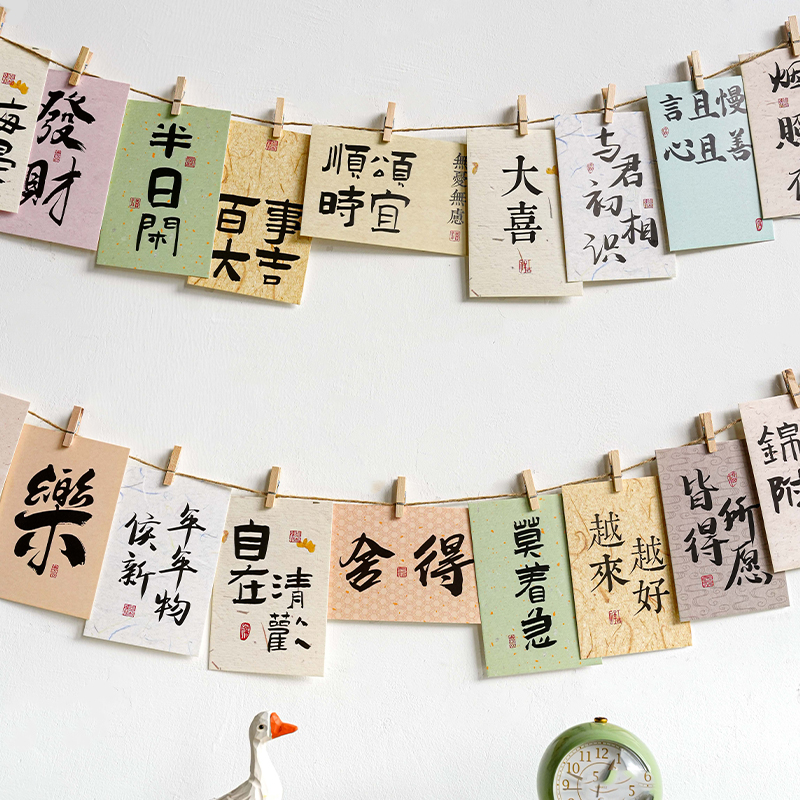 發財
半日閑
百事
大吉
順頌
時宜
無憂無慮
大喜
与君
初相
识
言且慢
心且善
樂
年年物
侯新
自在
清歡
舍得
莫着急
越來
越好
皆得
所愿
錦
附